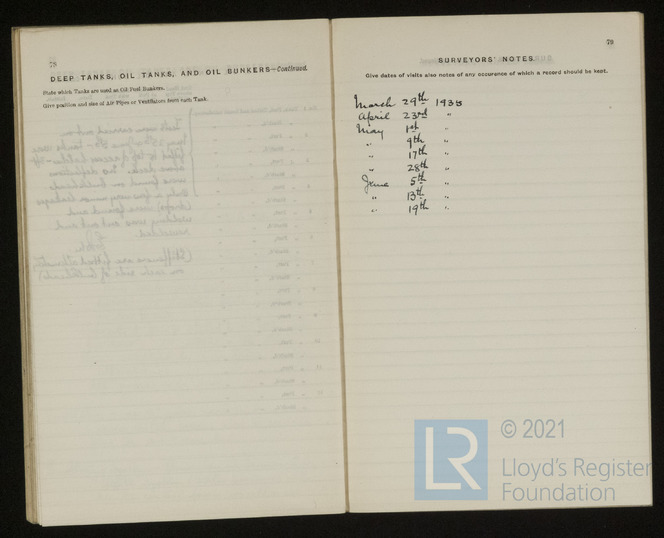 78
DEEP TANKS, OIL TANKS, AND OIL BUNKERS—Continued.
State which Tanks are used as Oil Fuel Bunkers.
Give position and size of Air Pipes or Ventilators from each Tank.
79
SURVEYORS' NOTES
Give dates of visits also notes of any occurence of which a record should be kept.
March 29th 1938
April 23rd "
May 1st "
" 9th "
" 17th "
" 28th "
June 5th "
" 13th "
" 19th "
LR
© 2021
Lloyd's Register
Foundation